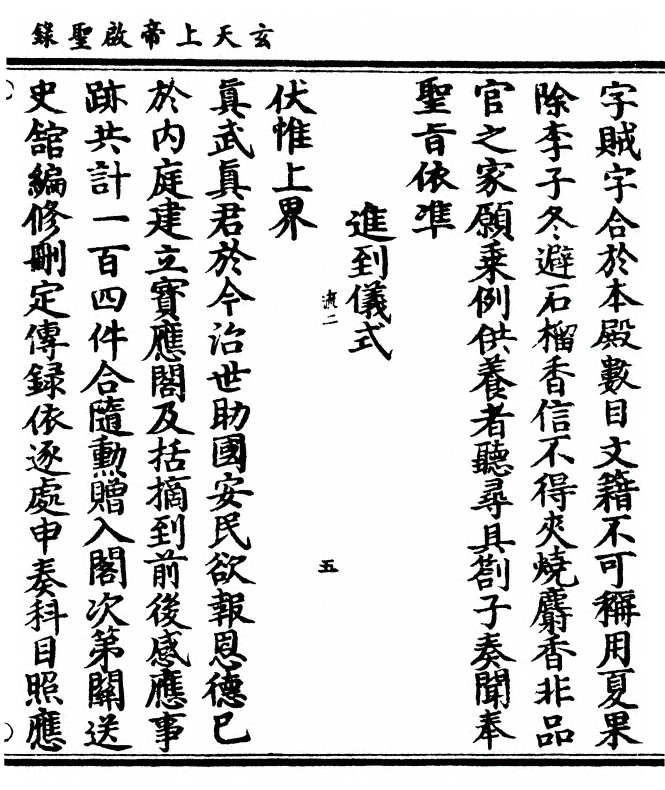 玄天上帝啟聖錄
字賊字合於本殿數目文籍不可稱用夏果
除李子冬避石榴香信不得夾燒麝香非品
官之家願乘例供養者聽尋具劄子奏聞奉
聖旨依準
進到儀式
流二
五
伏惟上界
眞武眞君於今治世助國安民欲報恩德已
於內庭建立寶應閣及括摘到前後感應事
跡共計一百四件合隨勳贈入閣次第關送
史館編修刪定傳録依逐處申奏科目照應